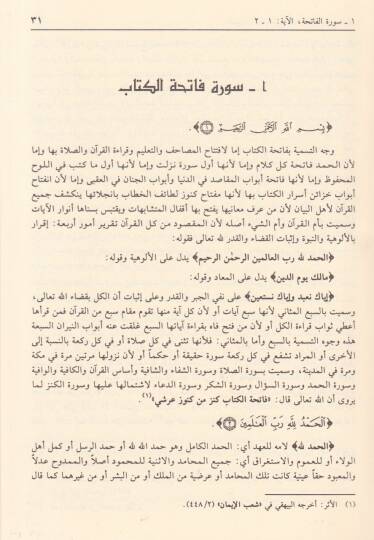 ١ ـ سورة الفاتحة، الآية: ١ ـ ٢
٣١
١ ـ سورة فاتحة الكتاب
﴿بِسْمِ اللَّهِ الرَّحْمَٰنِ الرَّحِيمِ ﴾.
وجه التسمية بفاتحة الكتاب إما لافتتاح المصاحف والتعليم وقراءة القرآن والصلاة بها وإما
لأن الحمد فاتحة كل كلام وإما لأنها أول سورة نزلت وإما لأنها أول ما كتب في اللوح
المحفوظ وإما لأنها فاتحة أبواب المقاصد في الدنيا وأبواب الجنان في العقبى وإما لأن انفتاح
أبواب خزائن أسرار الكتاب بها لأنها مفتاح كنوز لطائف الخطاب بانجلائها ينكشف جميع
القرآن لأهل البيان لأن من عرف معانيها يفتح بها أقفال المتشابهات ويقتبس بسناها أنوار الآيات
وسميت بأم القرآن وأم الشيء أصله لأن المقصود من كل القرآن تقرير أمور أربعة: إقرار
بالألوهية والنبوة وإثبات القضاء والقدر لله تعالى فقوله:
﴿الحمد لله رب العالمين الرحمٰن الرحيم﴾ يدل على الألوهية وقوله:
﴿مالك يوم الدين﴾ يدل على المعاد وقوله:
﴿إياك نعبد وإياك نستعين﴾ على نفي الجبر والقدر وعلى إثبات أن الكل بقضاء الله تعالى،
وسميت بالسبع المثاني لأنها سبع آيات أو لأن كل آية منها تقوم مقام سبع من القرآن فمن قرأها
أعطي ثواب قراءة الكل أو لأن من فتح فاه بقراءة آياتها السبع غلقت عنه أبواب النيران السبعة
هذه وجوه التسمية بالسبع وأما بالمثاني: فلأنها تثنى في كل صلاة أو في كل ركعة بالنسبة إلى
الأخرى أو المراد تشفع في كل ركعة سورة حقيقة أو حكماً أو لأن نزولها مرتين مرة في مكة
ومرة في المدينة، وسميت بسورة الصلاة وسورة الشفاء والشافية وأساس القرآن والكافية والوافية
وسورة الحمد وسورة السؤال وسورة الشكر وسورة الدعاء لاشتمالها عليها وسورة الكنز لما
يروى أن الله تعالى قال: «فاتحة الكتاب كنز من كنوز عرشي»(١).
﴿الْحَمْدُ لِلَّهِ رَبِّ الْعَالَمِينَ ﴾.
﴿الحمد لله﴾ لامه للعهد أي: الحمد الكامل وهو حمد الله لله أو حمد الرسل أو كمل أهل
الولاء أو للعموم والاستغراق أي: جميع المحامد والاثنية للمحمود أصلاً والممدوح عدلاً
والمعبود حقاً عينية كانت تلك المحامد أو عرضية من الملك أو من البشر أو من غيرهما كما قال
(١) الأثر: أخرجه البيهقي في «شعب الإيمان» (٢/ ٤٤٨).